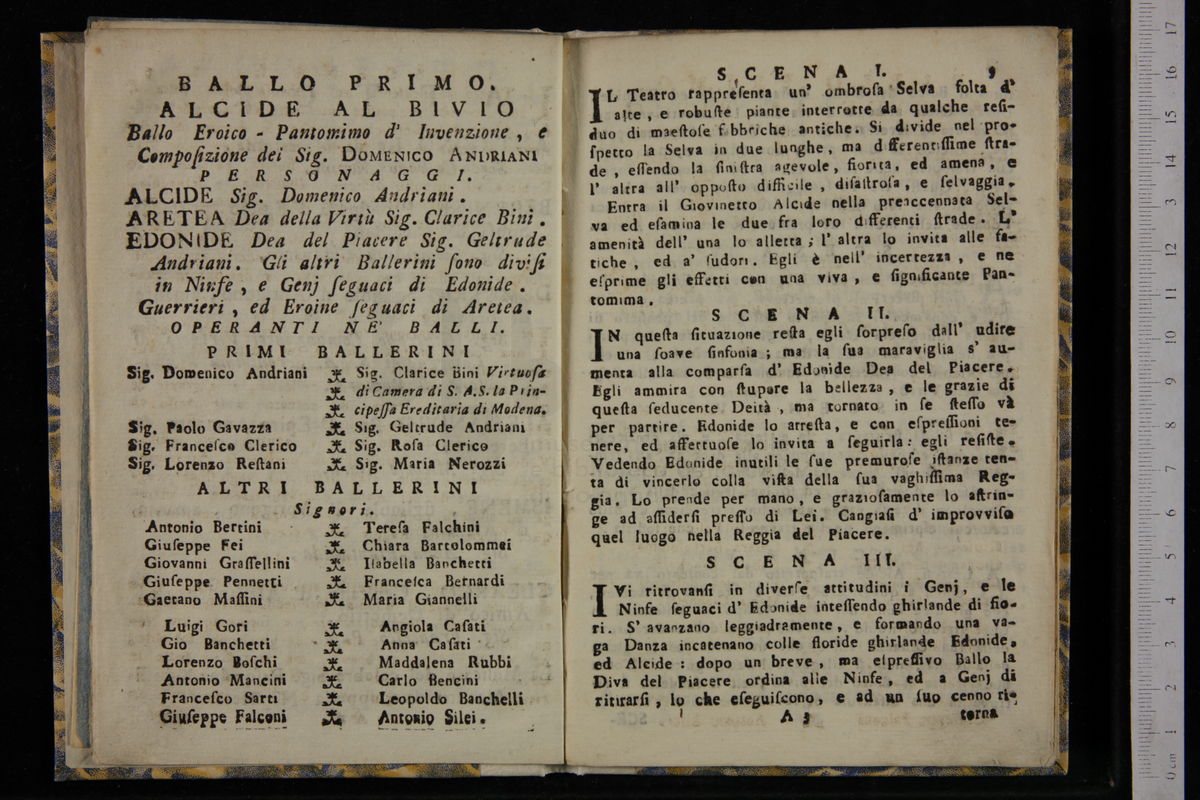 BALLO PRIMO.
ALCIDE AL BIVIO
Ballo Eroico - Pantomimo d' Invenzione, e
Compoſizione dei Sig. DOMENICO ANDRIANI
PERSONAGGI.
ALCIDE Sig. Domenico Andriani.
ARETEA Dea della Virtù Sig. Clarice Bini.
EDONIDE Dea del Piacere Sig. Geltrude
Andriani. Gli altri Ballerini ſono diviſi
in Ninfe, e Genj ſeguaci di Edonide.
Guerrieri, ed Eroine ſeguaci di Aretea.
OPERANTI NE' BALLI.
PRIMI BALLERINI
Sig. Domenico Andriani Sig. Clarice Bini Virtuoſa
di Camera di S. A. S. la Prin-
cipeſſa Ereditaria di Modena.
Sig. Paolo Gavazza Sig. Geltrude Andriani
Sig. Franceſco Clerico Sig. Roſa Clerico
Sig. Lorenzo Reſtani Sig. Maria Nerozzi
ALTRI BALLERINI
Signori.
Antonio Bertini Tereſa Falchini
Giuſeppe Fei Chiara Bartolommei
Giovanni Graſſellini Iſabella Banchetti
Giuſeppe Pennetti Franceſca Bernardi
Gaetano Maſſini Maria Giannelli
Luigi Gori Angiola Caſati
Gio Banchetti Anna Caſati
Lorenzo Boſchi Maddalena Rubbi
Antonio Mancini Carlo Bencini
Franceſco Sarti Leopoldo Banchelli
Giuſeppe Falconi Antonio Silei.
SCENA I. 9
IL Teatro rappreſenta un' ombroſa Selva folta d'
alte, e robuſte piante interrotte da qualche reſi-
duo di maeſtoſe fabbriche antiche. Si divide nel pro-
ſpetto la Selva in due lunghe, ma differentiſſime ſtra-
de, eſſendo la ſiniſtra agevole, fiorita, ed amena, e
l' altra all' oppoſto difficile, diſaſtroſa, e ſelvaggia.
Entra il Giovinetto Alcide nella preaccennata Sel-
va ed eſamina le due fra loro differenti ſtrade. L'
amenità dell' una lo alletta; l' altra lo invita alle fa-
tiche, ed a' ſudori. Egli è nell' incertezza, e ne
eſprime gli effetti con una viva, e ſignificante Pan-
tomima.
SCENA II.
IN queſta ſituazione reſta egli ſorpreſo dall' udire
una ſoave ſinfonia; ma la ſua maraviglia s' au-
menta alla comparſa d' Edonide Dea del Piacere.
Egli ammira con ſtupore la bellezza, e le grazie di
queſta ſeducente Deità, ma tornato in ſe ſteſſo và
per partire. Edonide lo arreſta, e con eſpreſſioni te-
nere, ed affettuoſe lo invita a ſeguirla: egli reſiſte.
Vedendo Edonide inutili le ſue premuroſe iſtanze ten-
ta di vincerlo colla viſta della ſua vaghiſſima Reg-
gia. Lo prende per mano, e grazioſamente lo aſtrin-
ge ad aſſiderſi preſſo di Lei. Cangiaſi d' improvviſo
quel luogo nella Reggia del Piacere.
SCENA III.
IVi ritrovanſi in diverſe attitudini i Genj, e le
Ninfe ſeguaci d' Edonide inteſſendo ghirlande di fio-
ri. S' avanzano leggiadramente, e formando una va-
ga Danza incatenano colle floride ghirlande Edonide,
ed Alcide: dopo un breve, ma eſpreſſivo Ballo la
Diva del Piacere ordina alle Ninfe, ed a Genj di
ritirarſi, lo che eſeguiſcono, e ad un ſuo cenno ri-
A 3 torna
0 cm 1 2 3 4 5 6 7 8 9 10 11 12 13 14 15 16 17